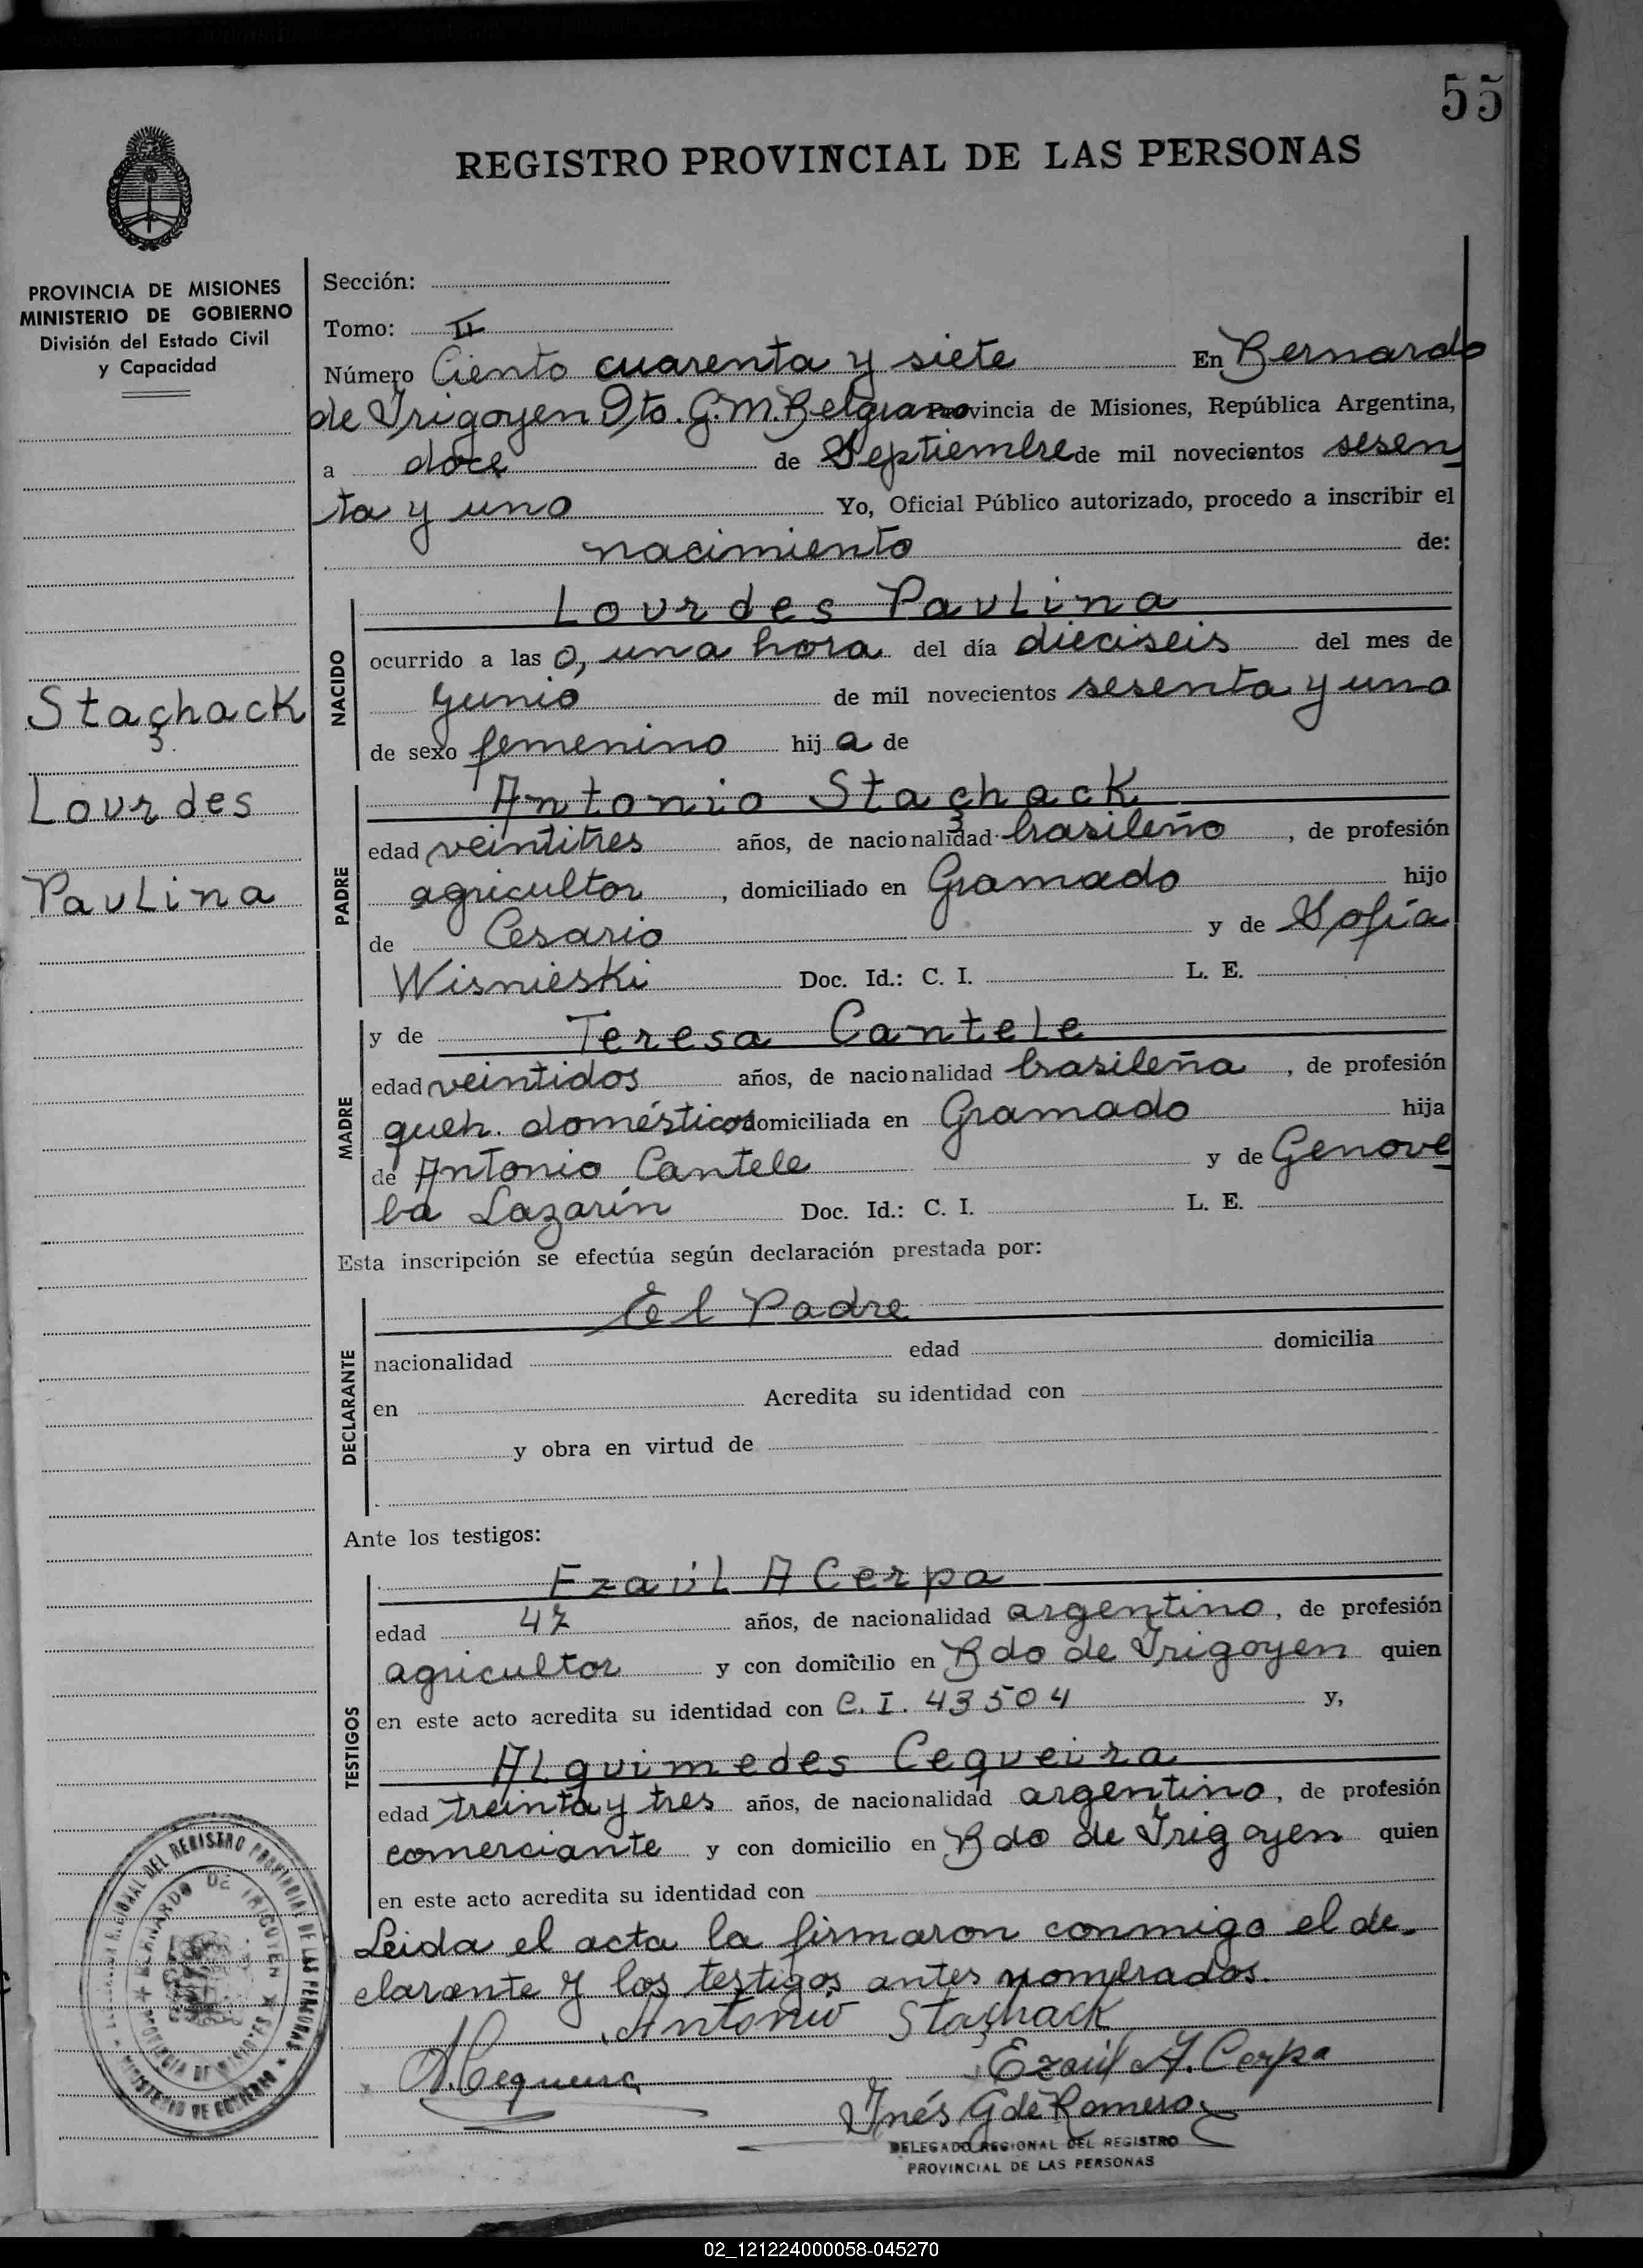 55
REGISTRO PROVINCIAL DE LAS PERSONAS
PROVINCIA DE MISIONES
MINISTERIO DE GOBIERNO
División del Estado Civil
y Capacidad
Staçhack
Lourdes
Paulina
Sección:
Tomo: II
Número Ciento cuarenta y siete En Bernardo
de Irigoyen Dto. G. M. Belgrano Provincia de Misiones, República Argentina,
a doce de Septiembre de mil novecientos sesen
ta y uno Yo, Oficial Público autorizado, procedo a inscribir el
nacimiento de:
NACIDO
Lourdes Paulina
ocurrido a las 0, una hora del día dieciseis del mes de
Junio de mil novecientos sesenta y uno
de sexo femenino hij a de
PADRE
Antonio Staçhack
edad veintitres años, de nacionalidad brasileño, de profesión
agricultor, domiciliado en Gramado hijo
de Cesario y de Sofía
Wisnieski Doc. Id.: C. I. L. E.
MADRE
y de Teresa Cantele
edad veintidos años, de nacionalidad brasileña, de profesión
queh. domésticos domiciliada en Gramado hija
de Antonio Cantele y de Genove
ba Lazarin Doc. Id.: C. I. L. E.
Esta inscripción se efectúa según declaración prestada por:
DECLARANTE
El Padre
nacionalidad edad domicilia
en Acredita su identidad con
y obra en virtud de
Ante los testigos:
TESTIGOS
Ezaúl A Cerpa
edad 47 años, de nacionalidad argentino, de profesión
agricultor y con domicilio en Bdo de Irigoyen quien
en este acto acredita su identidad con C. I. 43504 y,
Alquimedes Cequeira
edad treinta y tres años, de nacionalidad argentino, de profesión
comerciante y con domicilio en Bdo de Irigoyen quien
en este acto acredita su identidad con
Leida el acta la firmaron conmigo el de-
clarante y los testigos antes nombrados.
Antonio Staçhack
A. Cequeira
Ezaúl A. Cerpa
Inés G de Romero
DELEGADO REGIONAL DEL REGISTRO
PROVINCIAL DE LAS PERSONAS
REGIONAL DEL REGISTRO PROVINCIAL DE LAS PERSONAS
BERNARDO DE IRIGOYEN
PROVINCIA DE MISIONES
MINISTERIO DE GOBIERNO
02_121224000058-045270